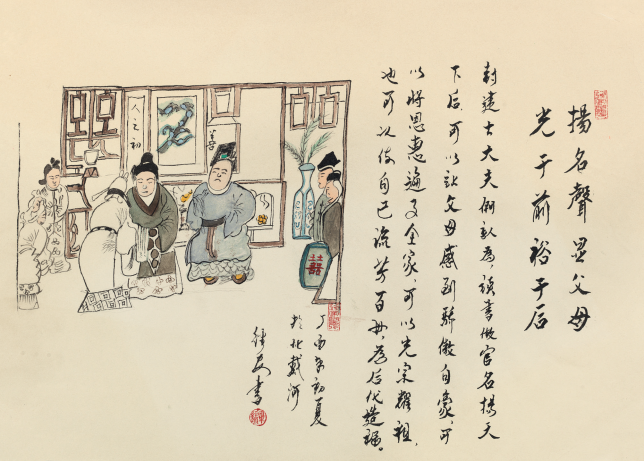 揚名聲显父母
光于前裕于后
封建士大夫们认为,读書做官名揚天
下后,可以让父母感到骄傲自豪,可
以将恩惠遍及全家,可以光宗耀祖,
也可以使自己流芳百世,为后代造福。
丁酉年初夏
於北戴河
書
人之初
善
囍